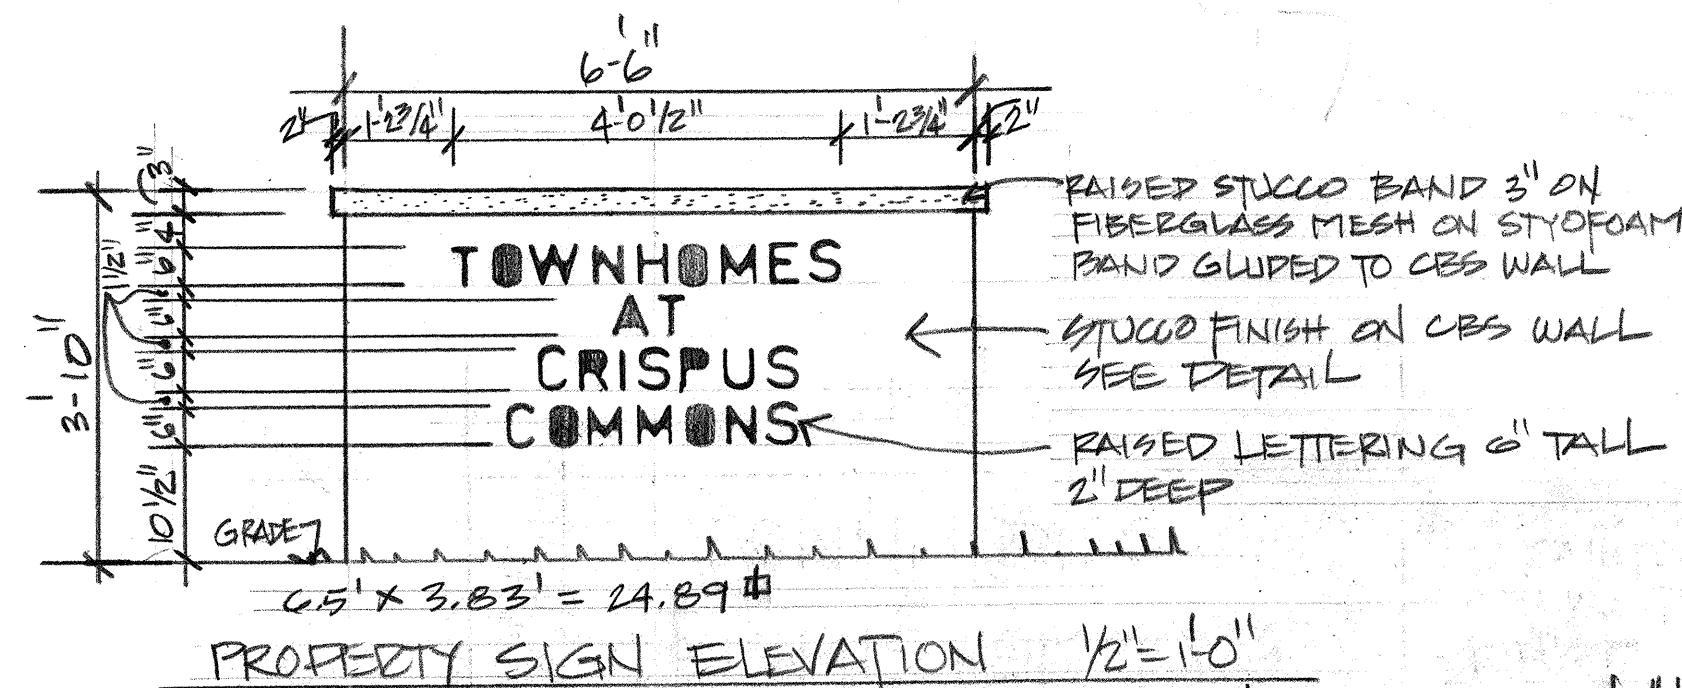 6'-6"
2" 1'-2 3/4" 4'-0 1/2" 1'-2 3/4" 2"
3"
4"
6"
1 1/2"
6"
6"
6"
10 1/2"
3'-10"
TOWNHOMES
AT
CRISPUS
COMMONS
RAISED STUCCO BAND 3" ON
FIBERGLASS MESH ON STYOFOAM
BAND GLUPED TO CBS WALL
STUCCO FINISH ON CBS WALL
SEE DETAIL
RAISED LETTERING 6" TALL
2" DEEP
GRADE
6.5' x 3.83' = 24.89 ⌑
PROPERTY SIGN ELEVATION 1/2"=1'-0"